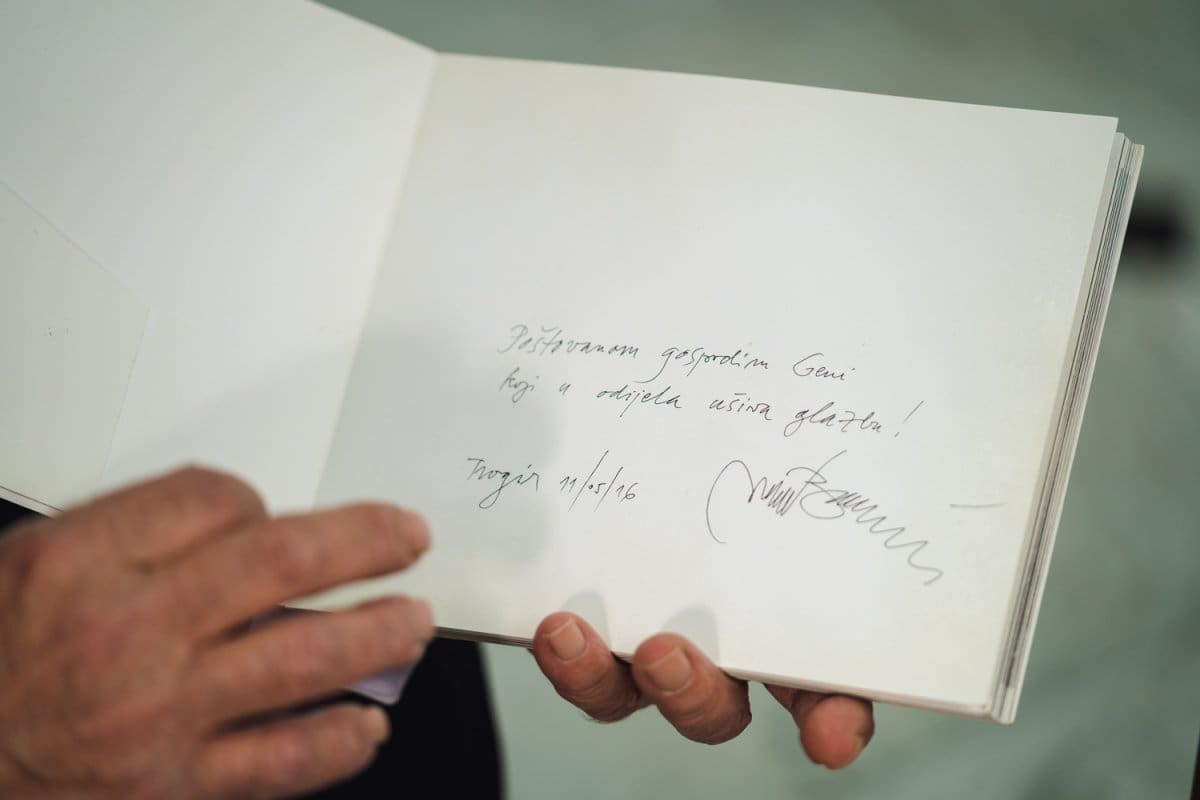 Poštovanom gospodinu Geni
koji u odijela ušiva glazbu!
Trogir 11/05/16